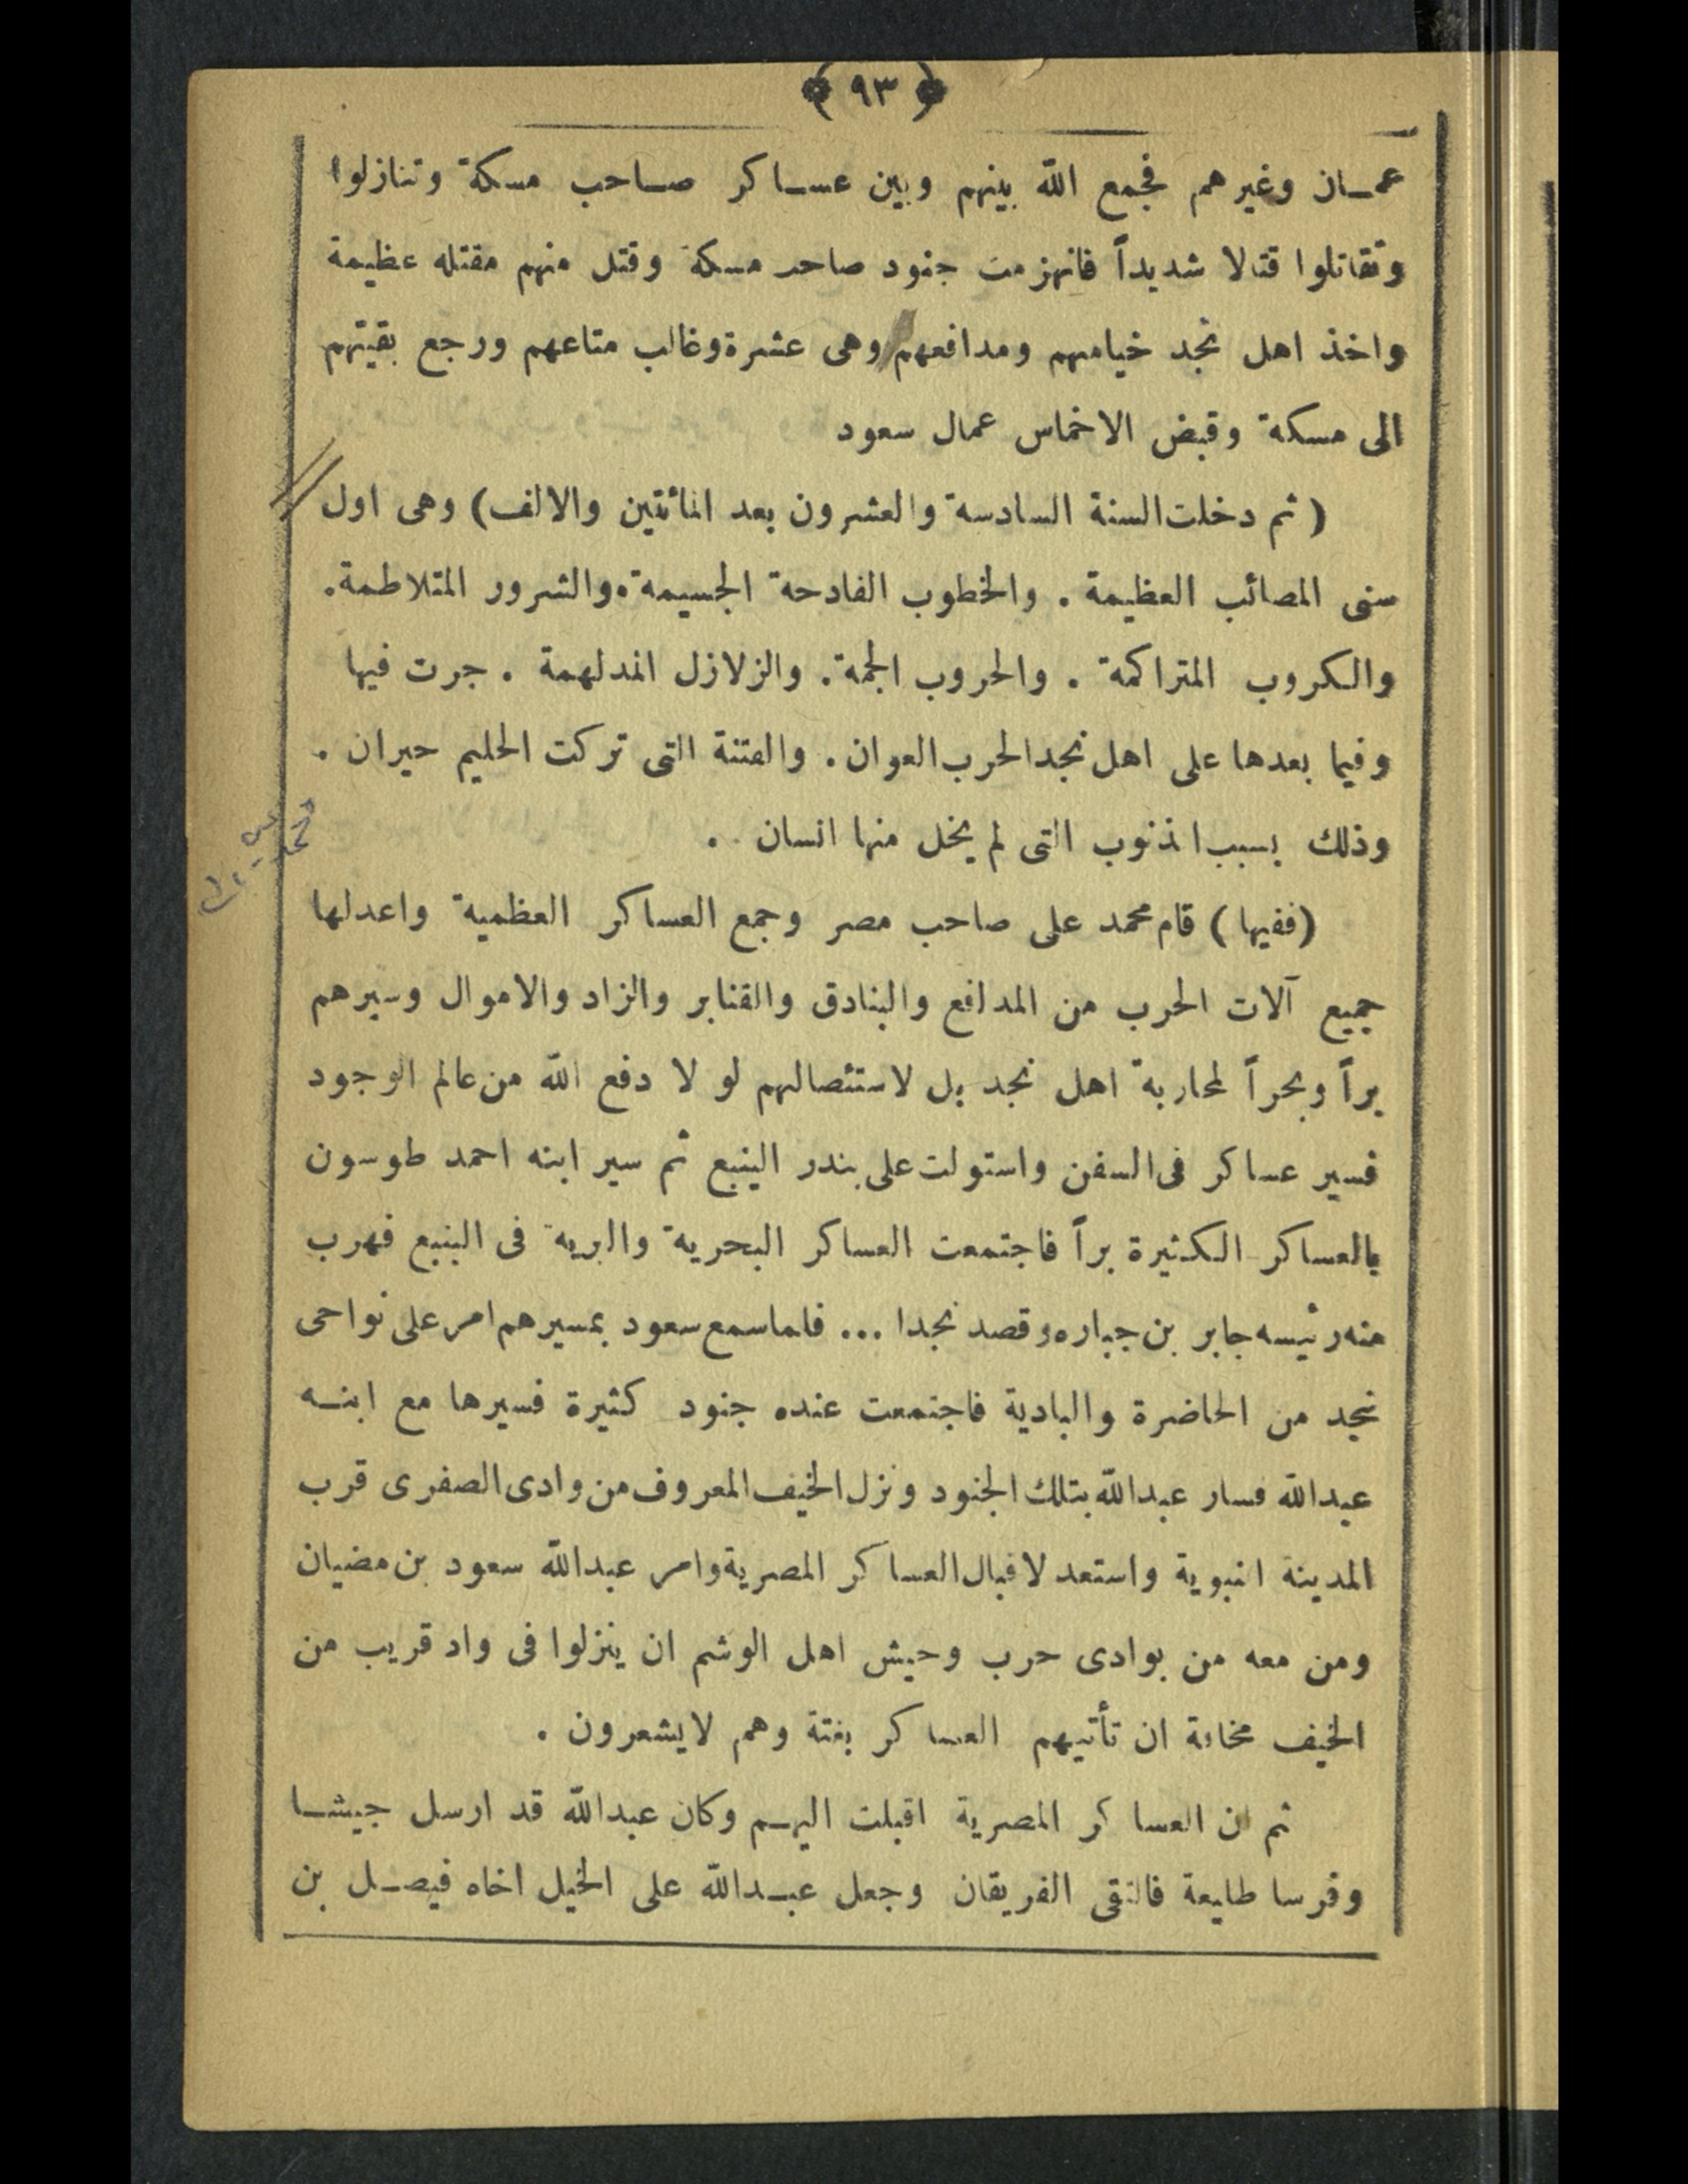 ﴿ ٩٣ ﴾
عمـان وغيرهم فجمع الله بينهم وبين عسـاكر صـاحب مسكة وتنازلوا
وتقاتلوا قتالا شديداً فانهزمت جنود صاحب مسكة وقتل منهم مقتله عظيمة
واخذ اهل نجد خيامهم ومدافعهم وهى عشرة وغالب متاعهم ورجع بقيتهم
الى مسكة وقبض الاخماس عمال سعود
( ثم دخلت السنة السادسة والعشرون بعد المائتين والالف) وهى اول
سنى المصائب العظيمة . والخطوب الفادحة الجسيمة . والشرور المتلاطمة.
والكروب المتراكمة . والحروب الجمة . والزلازل المدلهمة . جرت فيها
وفيما بعدها على اهل نجد الحرب العوان . والفتنة التى تركت الحليم حيران .
وذلك بسبب الذنوب التى لم يخل منها انسان .
(ففيها) قام محمد على صاحب مصر وجمع العساكر العظمية واعدلها
جميع آلات الحرب من المدافع والبنادق والقنابر والزاد والاموال وسيرهم
براً وبحراً لمحاربة اهل نجد بل لاستئصالهم لو لا دفع الله من عالم الوجود
فسير عساكر فى السفن واستولت على بندر الينبع ثم سير ابنه احمد طوسون
بالعساكر الكثيرة براً فاجتمعت العساكر البحرية والبرية فى الينبع فهرب
منه رئيسه جابر بن جباره وقصد نجدا ... فلما سمع سعود بمسيرهم امر على نواحى
نجد من الحاضرة والبادية فاجتمعت عنده جنود كثيرة فسيرها مع ابنـه
عبدالله فسار عبدالله بتلك الجنود ونزل الخيف المعروف من وادى الصفرى قرب
المدينة النبوية واستعد لاقبال العساكر المصرية وامر عبدالله سعود بن مضيان
ومن معه من بوادى حرب وجيش اهل الوشم ان ينزلوا فى واد قريب من
الخيف مخافة ان تأتيهم العساكر بغتة وهم لايشعرون .
ثم ان العساكر المصرية اقبلت اليهـم وكان عبدالله قد ارسل جيشـا
وفرسا طليعة فالتقى الفريقان وجعل عبـدالله على الخيل اخاه فيصـل بن